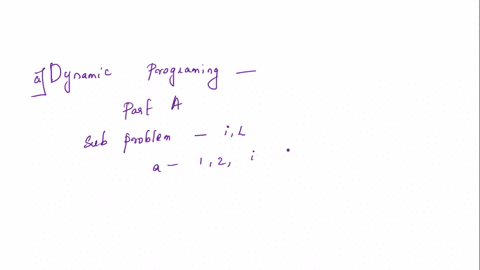 a] Dynamic Programing —
Part A
Sub problem — i, L
a — 1, 2, i